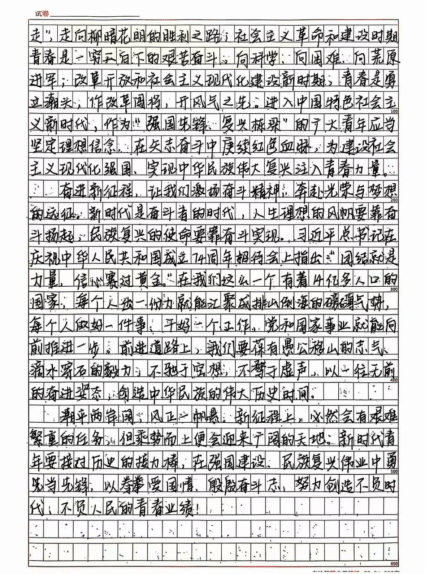 试卷
走”，走向柳暗花明的胜利之路；社会主义革命和建设时期
青春是一穷二白下的艰苦奋斗，向科学，向困难，向荒原
进军；改革开放和社会主义现代化建设新时期，青春是勇
立潮头，作改革闯将，开风气之先。进入中国特色社会主
义新时代，作为“强国先锋，复兴栋梁”的广大青年应当
坚定理想信念，在矢志奋斗中赓续红色血脉，为建设社会
主义现代化强国、实现中华民族伟大复兴注入青春力量。
奋进新征程，让我们激扬奋斗精神，奔赴光荣与梦想
的远征。新时代是奋斗者的时代，人生理想的风帆要靠奋
斗扬起，民族复兴的使命要靠奋斗实现。习近平总书记在
庆祝中华人民共和国成立74周年招待会上指出：“团结就是
力量，信心赛过黄金。”在我们这么一个有着14亿多人口的
国家，每个人出一份力就能汇聚成排山倒海的磅礴气势，
每个人做好一件事、干好一个工作，党和国家事业就能向
前推进一步。前进道路上，我们要保有愚公移山的志气、
滴水穿石的毅力，不驰于空想，不骛于虚声，以一往无前
的奋进姿态，创造中华民族的伟大历史时间。
潮平两岸阔，风正一帆悬。新征程上，必然会有艰难
繁重的任务，但乘势而上便会迎来广阔的天地。新时代青
年要接过历史的接力棒，在强国建设、民族复兴伟业中勇
先当先锋，以拳拳爱国情，殷殷奋斗志，努力创造不负时
代，不负人民的青春业绩！